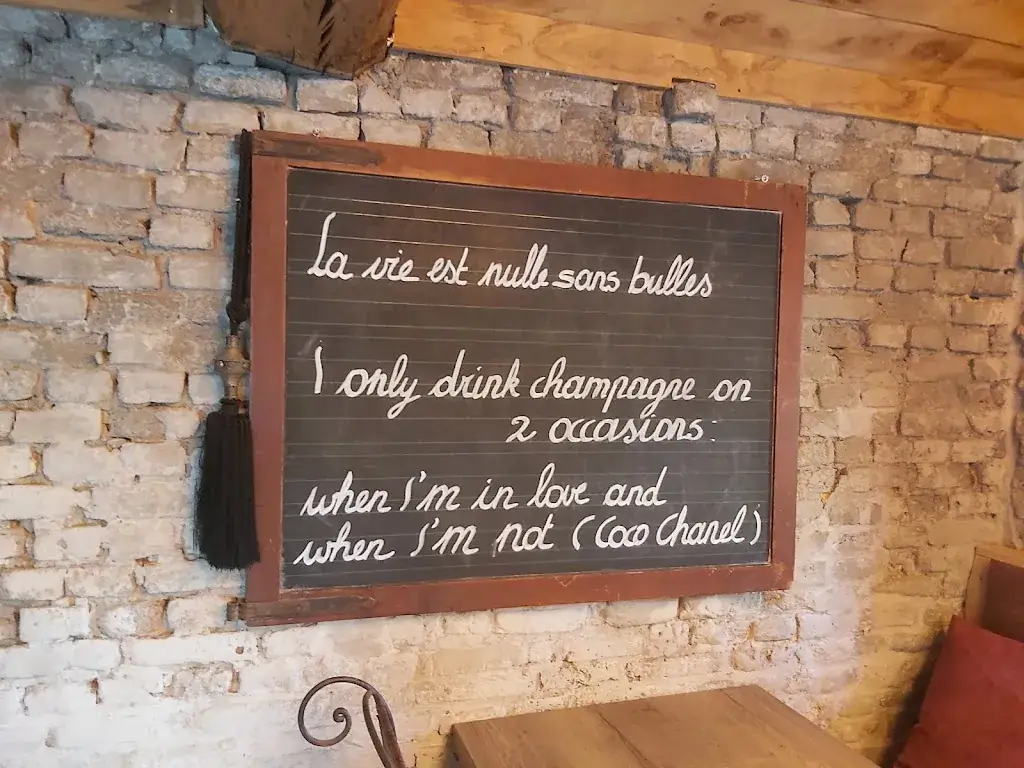 La vie est nulle sans bulles
I only drink champagne on
2 occasions:
when I'm in love and
when I'm not (Coco Chanel)